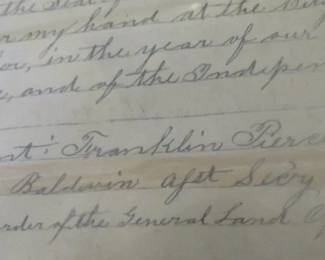 the Seal of
my hand at the
in the year of our
and of the Indepen
Franklin Pierc
Baldwin asst Secy
order of the General Land